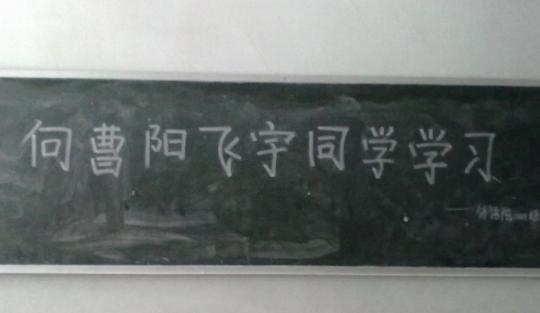 向曹阳飞宇同学学习